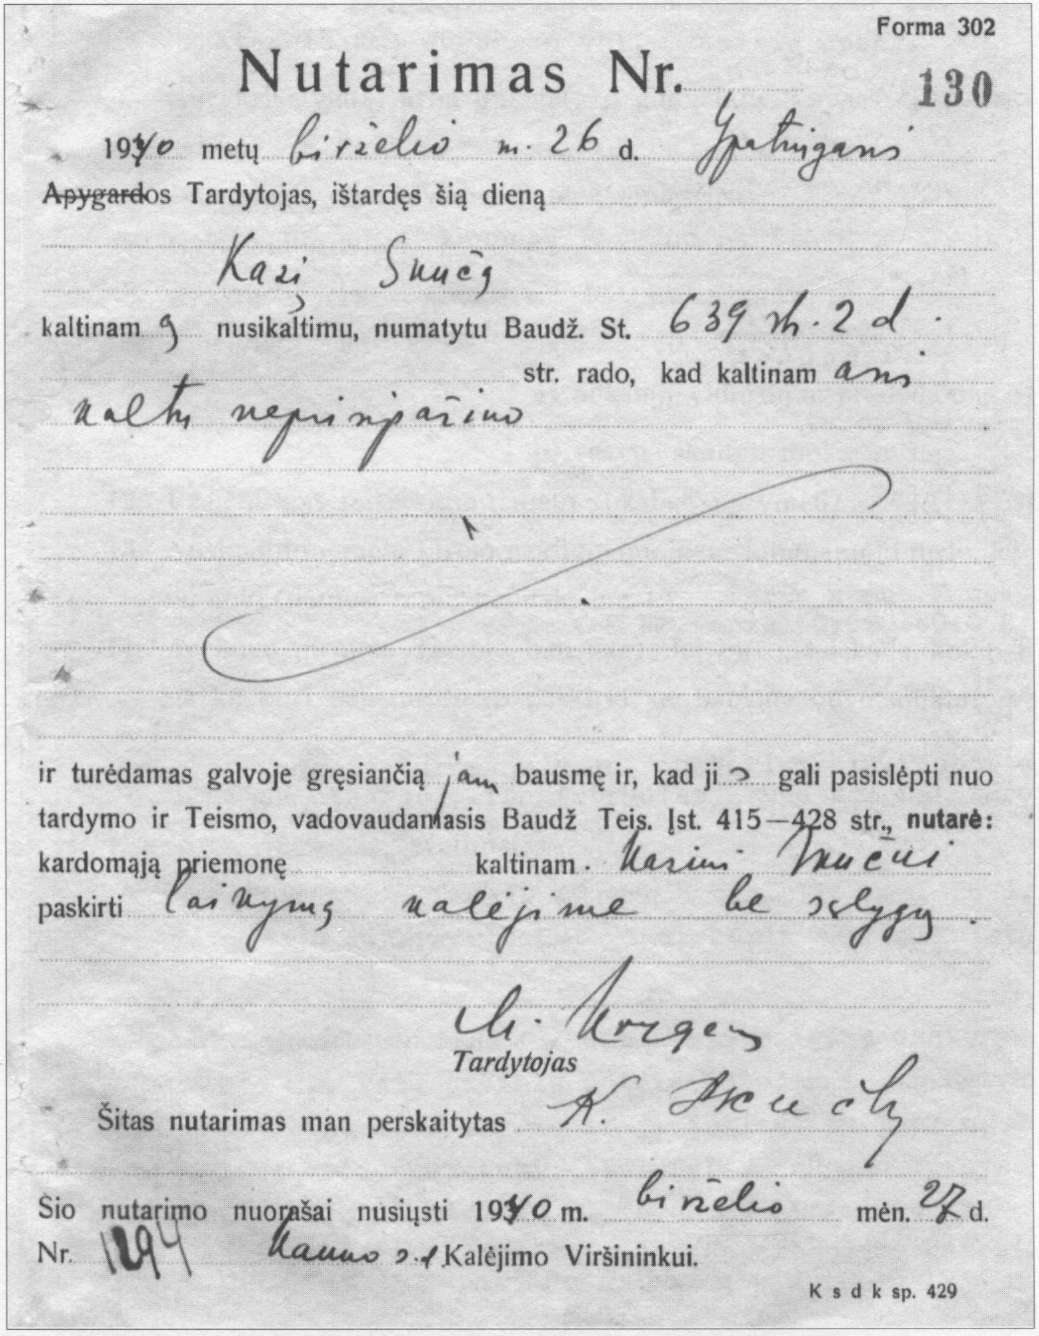 Forma 302
Nutarimas Nr. 130
1940 metų birželio m. 26 d. Ypatingasis
Apygardos Tardytojas, ištardęs šią dieną
Kazį Skučą
kaltinamą nusikaltimu, numatytu Baudž. St. 639 str. 2 d.
str. rado, kad kaltinamasis
kaltu neprisipažino
ir turėdamas galvoje gręsiančią jam bausmę ir, kad jis gali pasislėpti nuo
tardymo ir Teismo, vadovaudamasis Baudž Teis. Įst. 415—428 str., nutarė:
kardomąją priemonę kaltinam. Kaziui Skučui
paskirti laikymą kalėjime be sąlygų.
Tardytojas
Šitas nutarimas man perskaitytas K. Skučas
Šio nutarimo nuorašai nusiųsti 1940 m. birželio mėn. 27 d.
Nr. 1294 Kauno s. d. Kalėjimo Viršininkui.
K s d k sp. 429